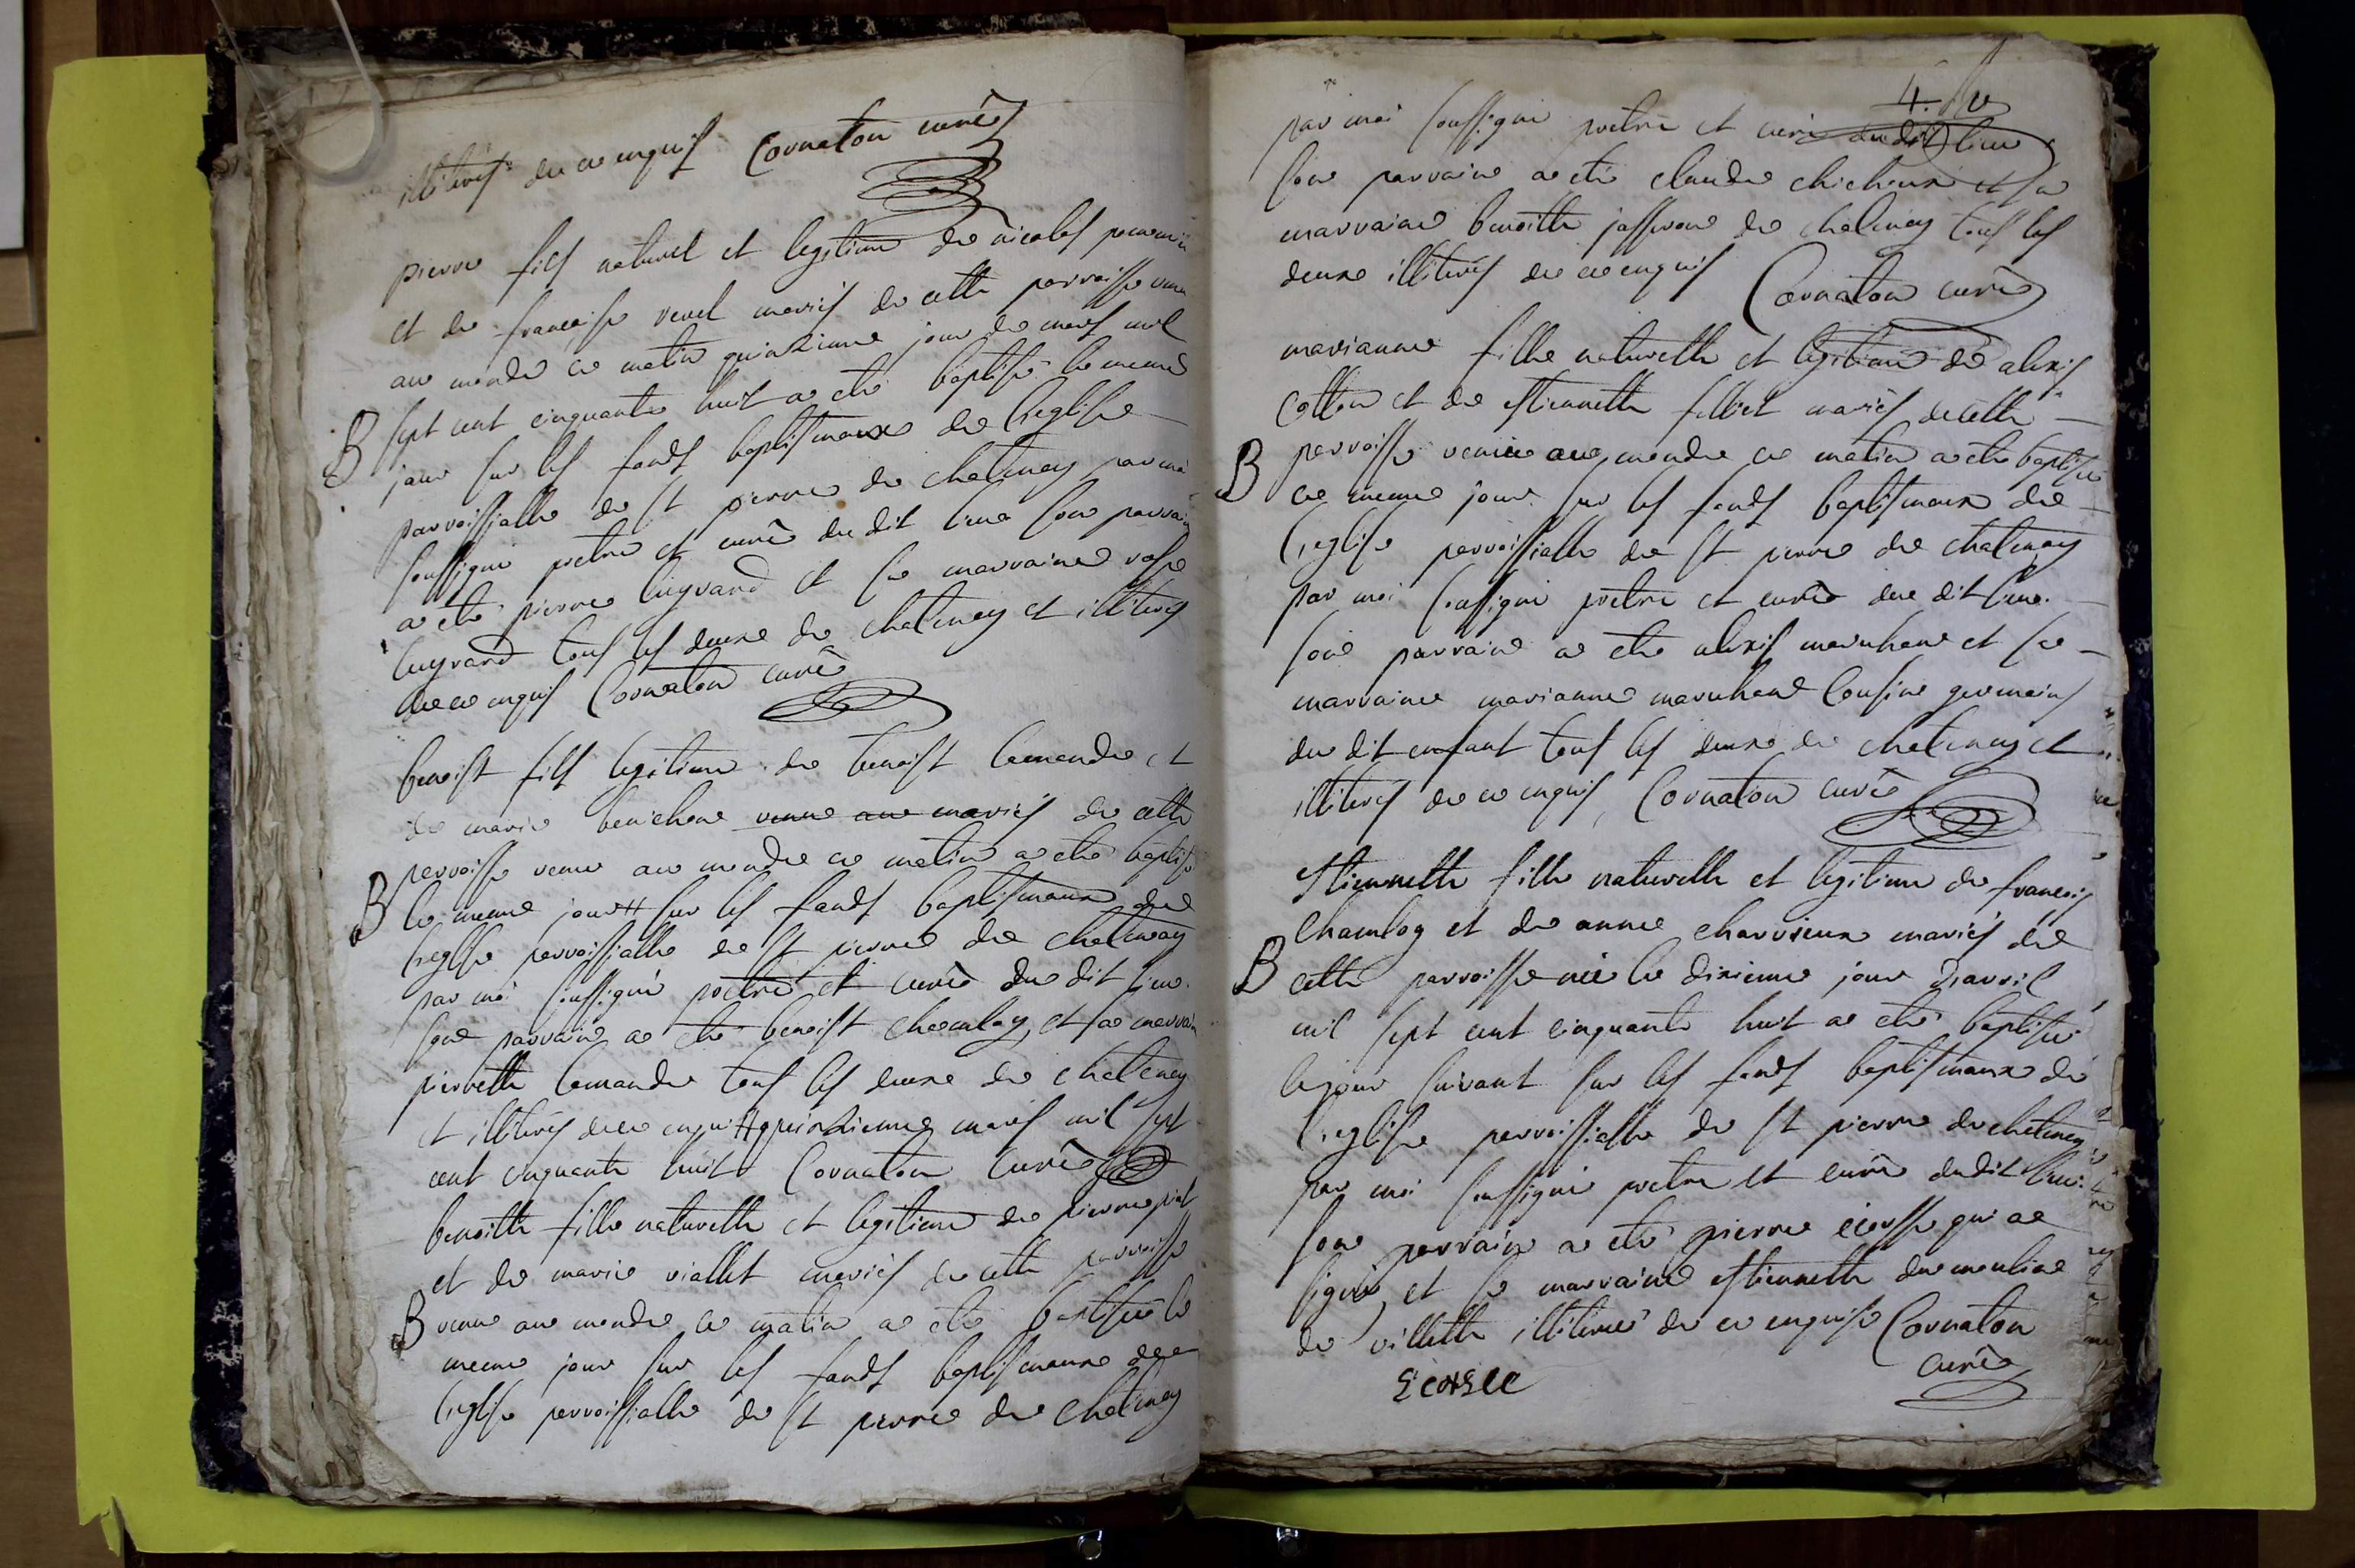 illiterés de ce enquis Cornaton curé
pierre fils naturel et legitime de nicolas
et de françoise revel mariés de cette parroisse venu
au monde ce matin quinzieme jour de mars mil
B sept cent cinquante huit a eté baptisé le meme
jour sur les fonds baptismaux de l'eglise
parroissialle de st pierre de chatenay par moi
soussigné pretre et curé du dit lieu son parrain
a eté pierre lugrand et sa marraine rose
lugrand tous les deux de chatenay et illiterés
de ce enquis Cornaton curé
benoist fils legitime de benoist lemandre et
de marie benichon venu au mariés de cette
parroisse venu au monde ce matin a eté baptisé
B le meme jour # sur les fonds baptismaux de
l'eglise parroissialle de st pierre de chatenay
par moi soussigné pretre et curé du dit lieu.
son parrain a eté benoist chamlay, et sa marraine
pierrette lemandre tous les deux de chatenay
et illiterés de ce enquis # quinzieme mars mil sept
cent cinquante huit Cornaton curé
benoitte fille naturelle et legitime de pierre
et de marie viallet mariés de cette parroisse
B venue au monde ce matin a eté baptisée le
meme jour sur les fonds baptismaux de
l'eglise parroissialle de st pierre de chatenay
4.
par moi soussigné pretre et curé dudit lieu
son parrain a eté claude chicheux et sa
marraine benoitte jasseron de chatenay tous les
deux illiterés de ce enquis Cornaton curé
marianne fille naturelle et legitime de alexis
cotton et de estiennette filliet mariés de cette
B parroisse venue au monde ce matin a eté baptisée
ce meme jour sur les fonds baptismaux de
l'eglise parroissialle de st pierre de chatenay
par moi soussigné pretre et curé du dit lieu.
son parrain a eté alexis marichand et sa
marraine marianne marichand cousine germains
du dit enfant tous les deux de chatenay et
illiterés de ce enquis, Cornaton curé
Stiennette fille naturelle et legitime de francois
Chamlay et de anne charvieux mariés de
B cette parroisse née le dixieme jour d'avril
mil sept cent cinquante huit a eté baptisée
le jour suivant sur les fonds baptismaux de
l'eglise parroissialle de st pierre de chatenay
par moi soussigné pretre et curé dudit lieu.
son parrain a eté pierre écorsse qui a
signé, et sa marraine estiennette dumouline
de villette illiterée de ce enquise Cornaton
curé
Ecorsee